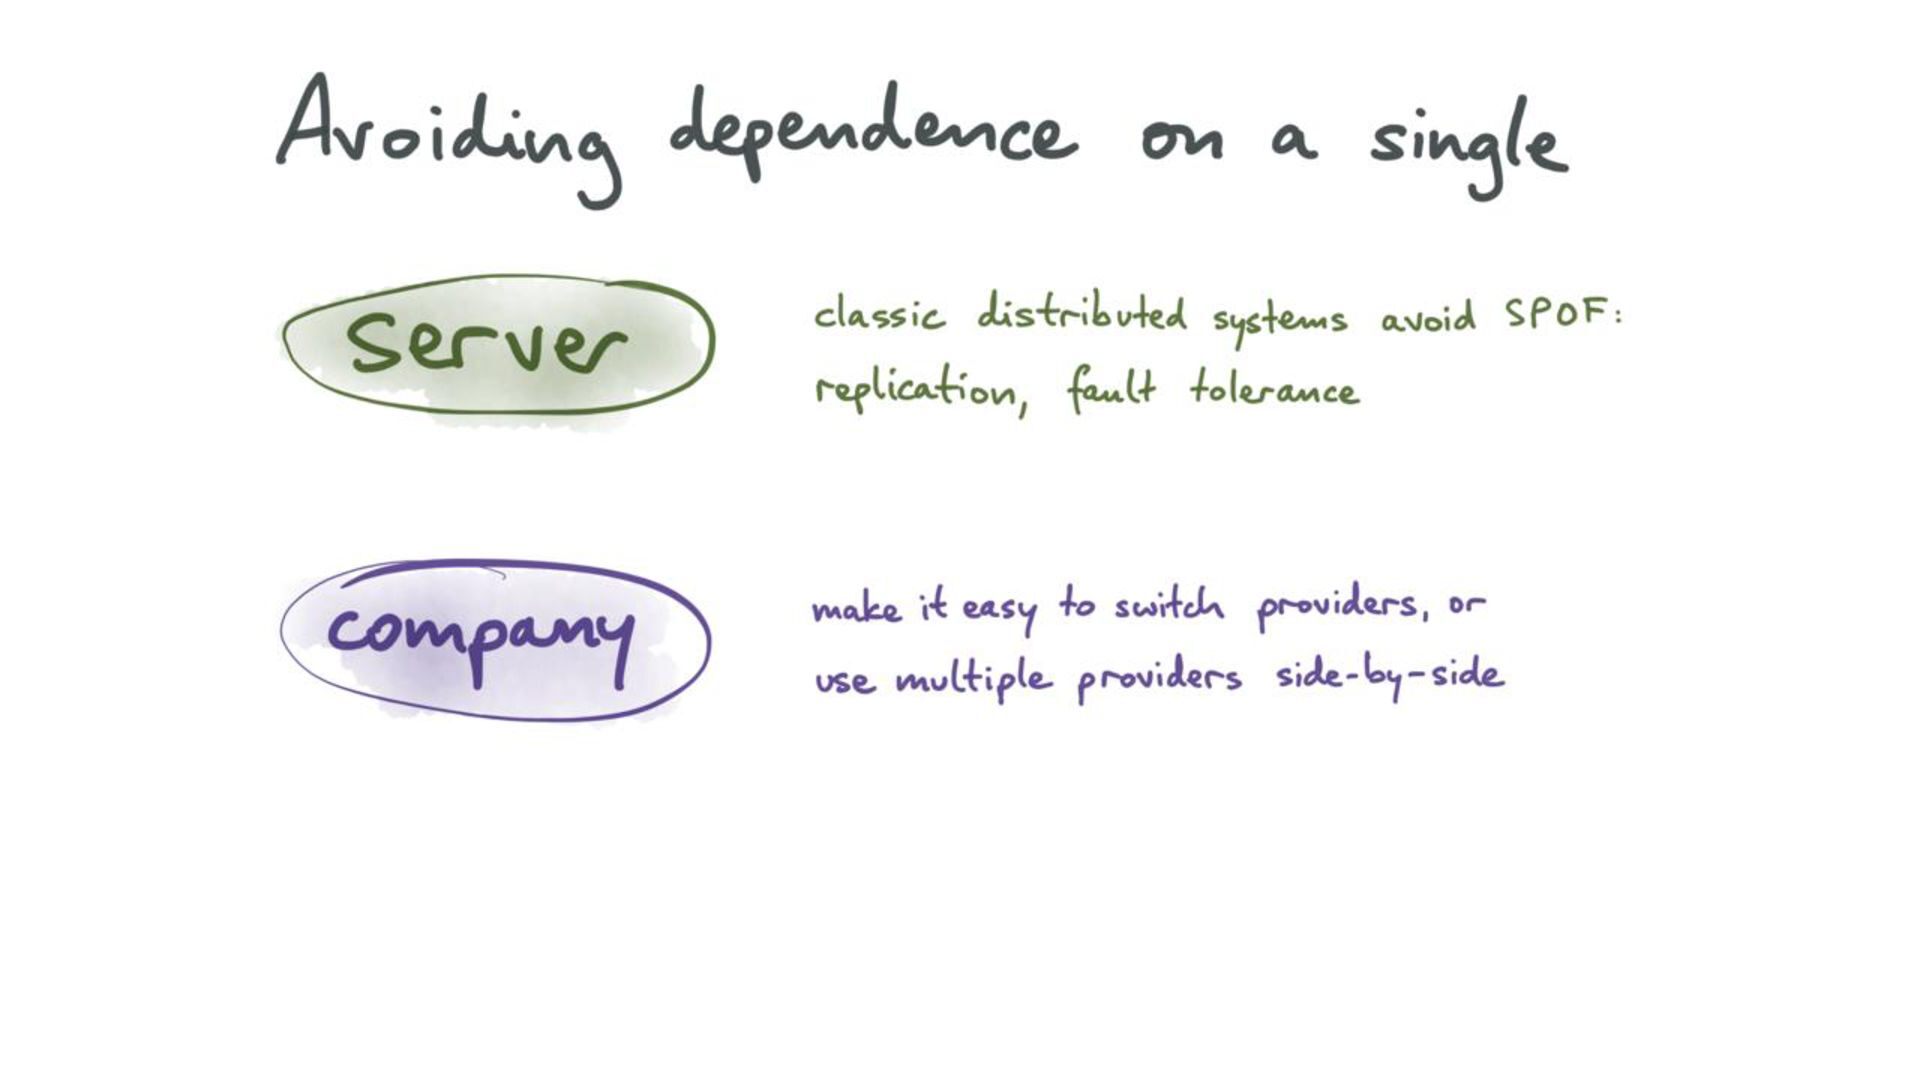 Avoiding dependence on a single
server
classic distributed systems avoid SPOF:
replication, fault tolerance
company
make it easy to switch providers, or
use multiple providers side-by-side